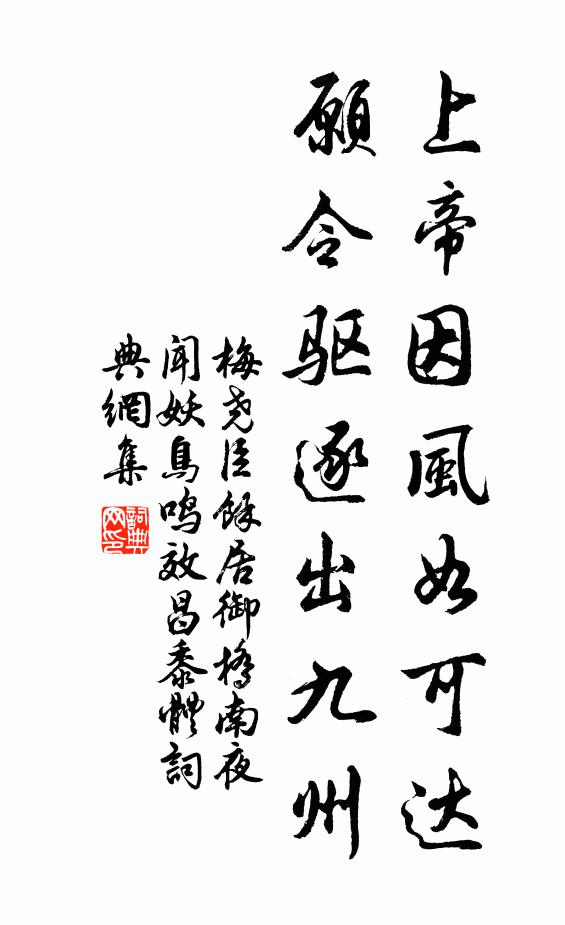 上帝因風如可达
願令驱逐出九州
梅尧臣餘居御橋南夜
闻妖鳥鸣效昌黍體詞
典網集
詞典
网印